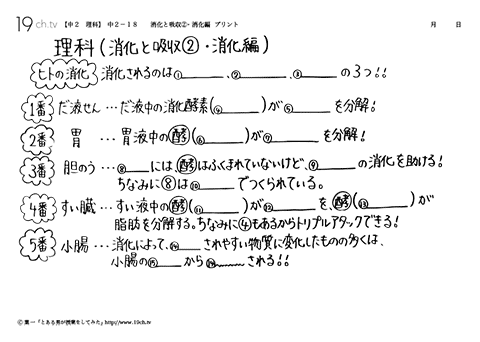 19 ch.tv 【中2 理科】 中2-18 消化と吸収②・消化編 プリント 月 日
理科(消化と吸収②・消化編)
ヒトの消化 消化されるのは①____、②____、③____の3つ!!
1番 だ液せん…だ液中の消化酵素(④____)が⑤____を分解!
2番 胃 …胃液中の酵(⑥____)が⑦____を分解!
3番 胆のう…⑧____には、酵はふくまれていないけど、⑨____の消化を助ける!
ちなみに⑧は⑩____でつくられている。
4番 すい臓…すい液中の酵(⑪____)が⑫____を、酵(⑬____)が
脂肪を分解する。ちなみに④もあるからトリプルアタックできる!
5番 小腸…消化によって、⑭____されやすい物質に変化したものの多くは、
小腸の⑮____から⑭____される!!
© 葉一「とある男が授業をしてみた」http://www.19ch.tv